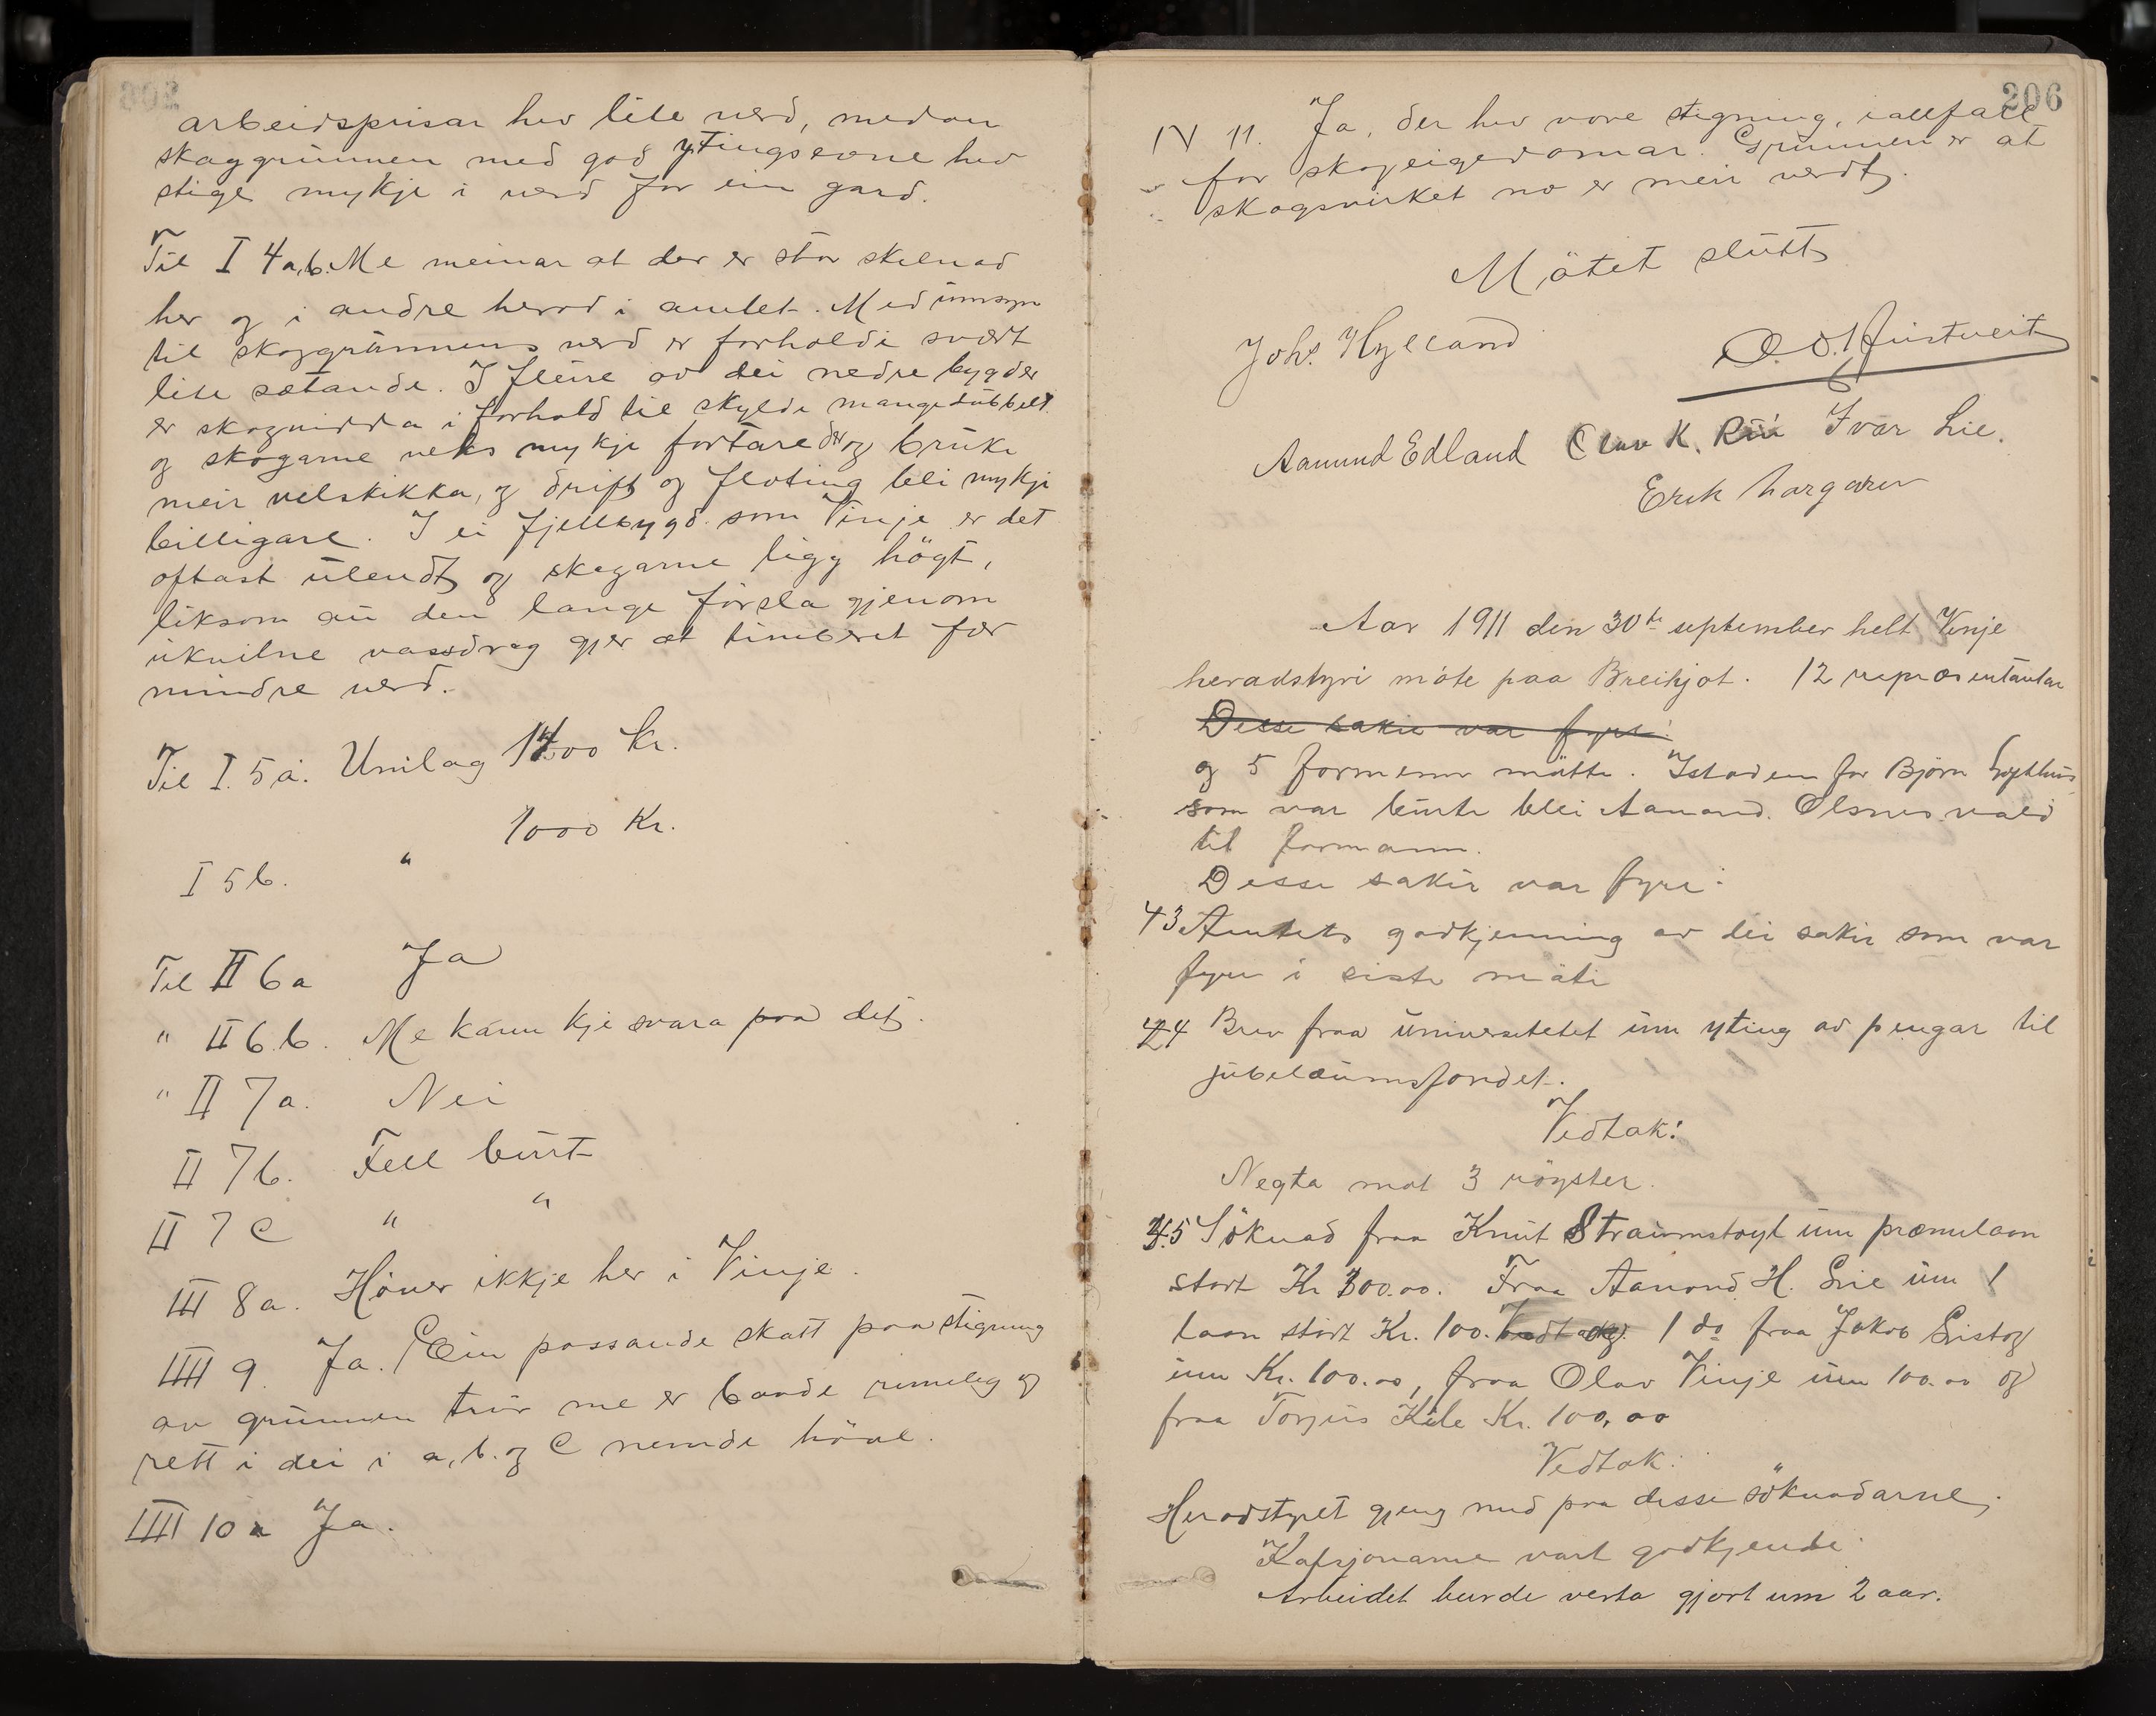 arbeidsprisar hev lite verd, medan
skoggrunnen med god ytingsevne hev
stige mykje i verd for ein gard.
Til I 4a,b. Me meinar at der er stor skilnad
her og i andre herod i amtet. Med umsyn
til skoggrunnens verd er forholdi svært
lite sætande. I fleire av dei nedre bygder
er skogvidda i forhold til skyldi mangedubbelt
og skogarne veks mykje fortare der og bruke
meir velskikka, og drift og floting bli mykje
billigare. I ei fjellbygd som Vinje er det
oftast ulendt og skogarne ligg högt,
liksom au den lange forsla gjenom
ukvilne vassdrag gjer at timberet fær
mindre verd.
Til I. 5 a. Umlag 1400 kr.
1000 Kr.
I 5 b. "
Til II 6a Ja
" II 6.b. Me kann kje svara paa det.
" II 7a. Nei
II 7b. Fell burt
II 7 c " "
III 8a. Höver ikkje her i Vinje.
IIII 9. Ja. Ein passande skatt paa stigning
av grunnen trur me er baade rimeleg og
rett i dei i a, b. og c nemde höve.
IIII 10 a Ja.
206
IV 11. Ja, der hev vore stigning, iallfall
for skogeigedomar. Grunnen er at
skogsvirket no er meir verdt.
Mötet slutt
Johs. Hylland
Aamund Edland Olav K. Rui Ivar Lie.
Erik
Aar 1911 den 30te september helt Vinje
heradstyri möte paa Breihjot. 12 repræsentantar
Desse sakir var fyre:
og 5 formenn mötte. Istaden for Björn
som var burte blei Aanund Olsnes vald
til formann.
Desse sakir var fyre:
43 Amtets godkjenning av dei sakir som var
fyre i siste möte
44 Brev fraa universitetet um yting av pengar til
jubelæumsfondet.
Vedtak:
Negta mot 3 röyster.
45 Söknad fraa Knut Straumstoyl um præmilaan
stort Kr 300.00. Fraa Aanond H. Lie um 1
laan stort Kr. 100. 1 do fraa Jakob Listog
um Kr. 100.00, fraa Olav Vinje um 100.00 og
fraa Torjus Kile Kr. 100,00
Vedtak:
Heradstyret gjeng med paa desse söknadarne,
Kafsjonarne vart godkjende.
Arbeidet burde verta gjort um 2 aar.